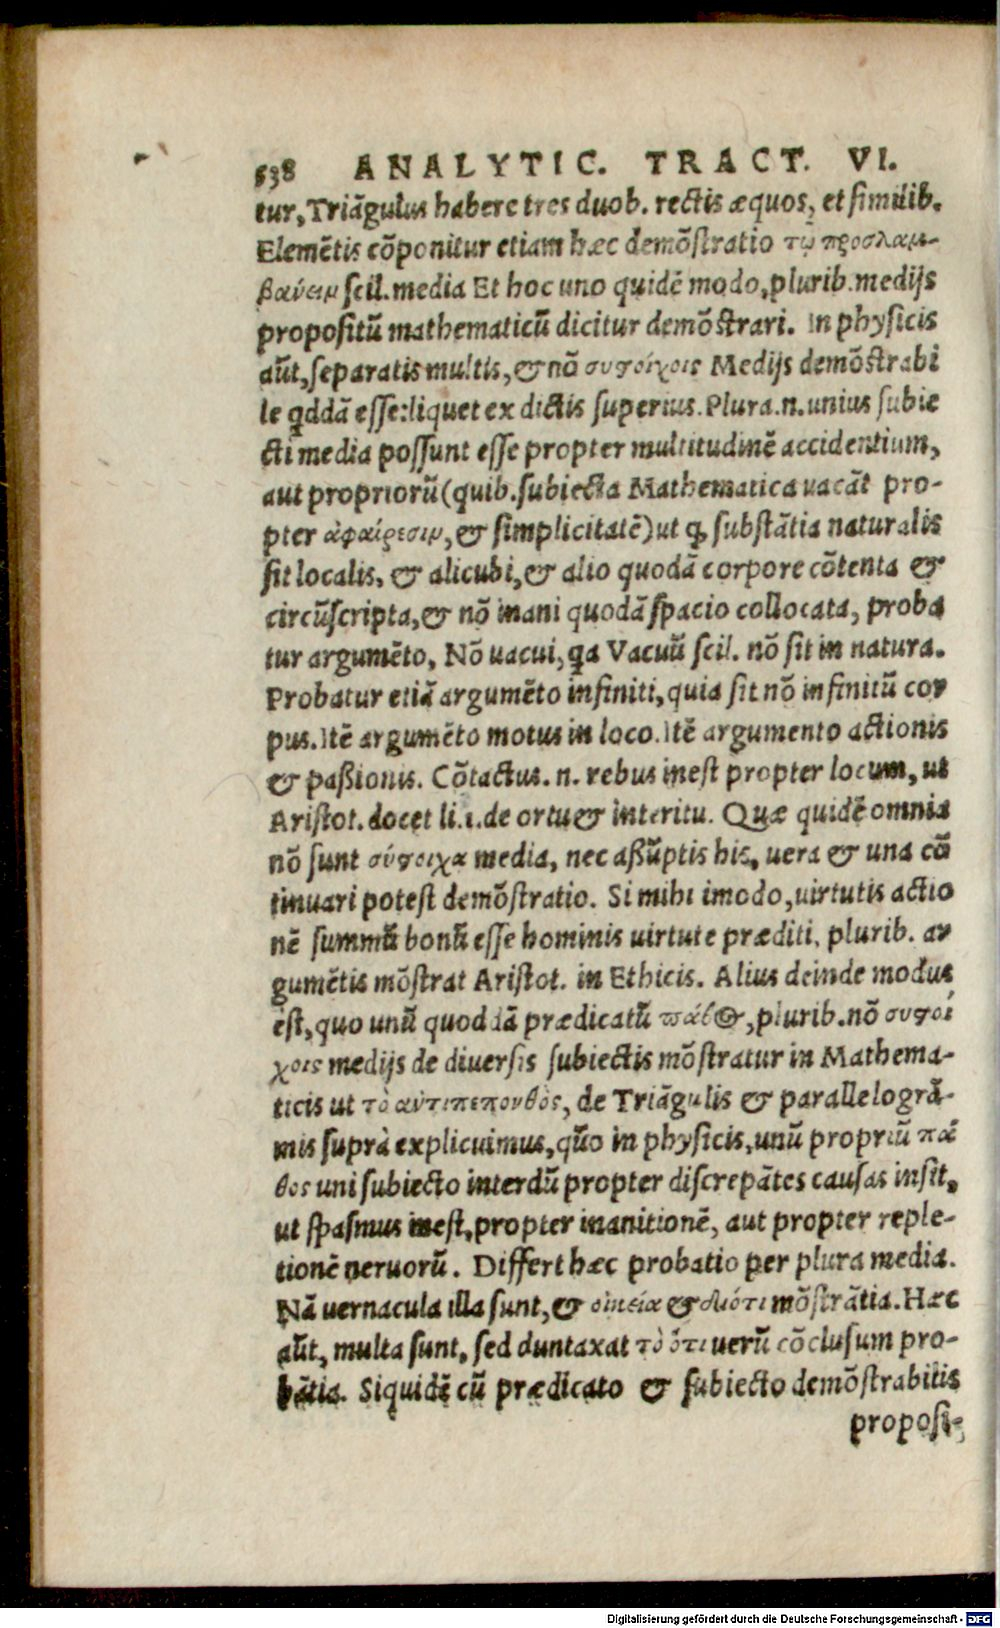 538 ANALYTIC. TRACT. VI.
tur, Triãgulus habere tres duob. rectis æquos, et similib.
Elemẽtis cõponitur etiam hæc demõstratio τῷ προσλαμ-
βαύειμ scil. media Et hoc uno quidẽ modo, plurib. medijs
propositũ mathematicũ dicitur demõstrari. In physicis
aũt, separatis multis, & nõ συςοίχοις Medijs demõstrabi
le qddã esse: liquet ex dictis superius. Plura .n. unius subie
cti media possunt esse propter multitudinẽ accidentium,
aut propriorũ (quib. subiecta Mathematica uacãt pro-
pter ἀφαίρεσιμ, & simplicitatẽ) ut q substãtia naturalis
sit localis, & alicubi, & alio quodã corpore cõtenta &
circũscripta, & nõ inani quodã spacio collocata, proba
tur argumẽto, Nõ uacui, qa Vacuũ scil. nõ sit in natura.
Probatur etiã argumẽto infiniti, quia sit nõ infinitũ cor
pus. Itẽ argumẽto motus in loco. Itẽ argumento actionis
& paßionis. Cõtactus .n. rebus inest propter locum, ut
Aristot. docet li. 1. de ortu & interitu. Quæ quidẽ omnia
nõ sunt σύςοιχα media, nec aßũptis his, uera & una cõ
tinuari potest demõstratio. Simihi imodo, uirtutis actio
nẽ summũ bonũ esse hominis uirtute præditi, plurib. ar
gumẽtis mõstrat Aristot. in Ethicis. Alius deinde modus
est, quo unũ quoddã prædicatũ πάθος, plurib. nõ συςοί
χοις medijs de diuersis subiectis mõstratur in Mathema-
ticis ut τὸ αὐτιπεπονθὸς, de Triãgulis & parallelogrã-
mis suprà explicuimus, quõ in physicis, unũ propriũ πά
θος uni subiecto interdũ propter discrepãtes causas insit,
ut spasmus inest, propter inanitionẽ, aut propter reple-
tionẽ neruorũ. Differt hæc probatio per plura media.
Nã uernacula illa sunt, & οἰκεία & διότι mõstrãtia. Hæc
aũt, multa sunt, sed duntaxat τὸ ὅτι uerũ cõclusum pro-
bãtia. Siquidẽ cũ prædicato & subiecto demõstrabilis
proposi-
Digitalisierung gefördert durch die Deutsche Forschungsgemeinschaft - DFG